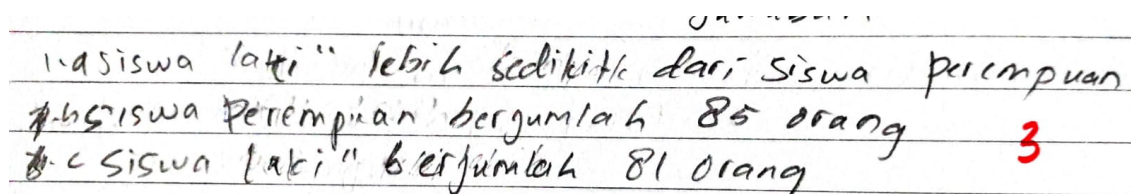 1. a siswa laki" lebih sedikitk dari siswa perempuan
b siswa Perempuan bergumlah 85 orang
3
c siswa laki" berjumlah 81 orang